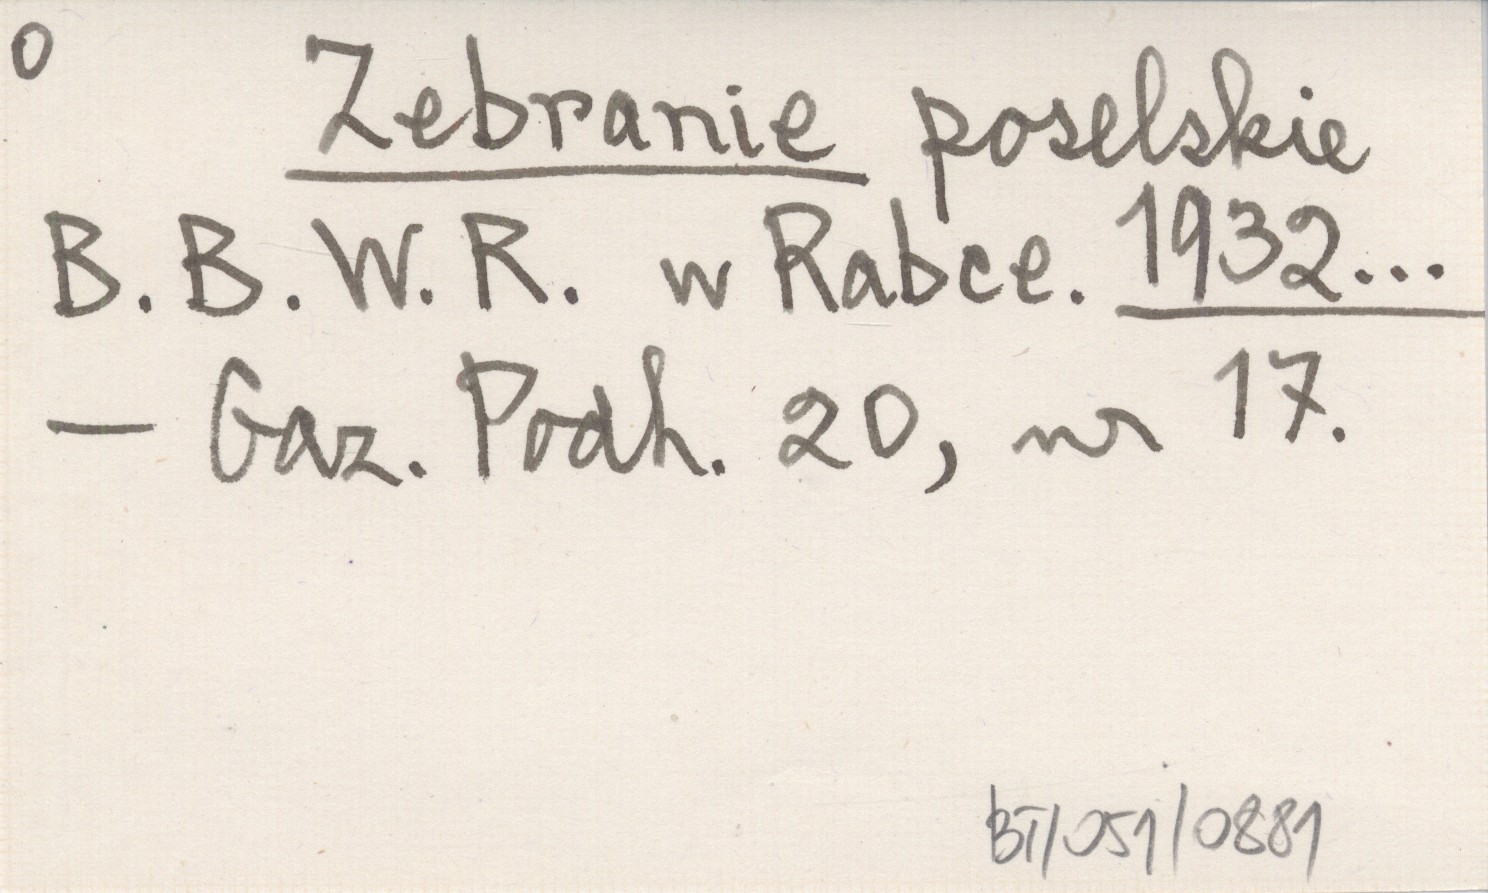 O
Zebranie poselskie
B.B.W.R. w Rabce. 1932...
— Gaz. Podh. 20, nr 17.
BT/051/0881